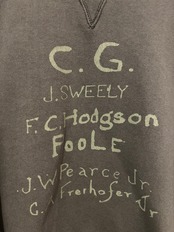 C. G.
J. SWEELY
F. C. Hodgson
FOOLE
J. W Pearce Jr.
G. Freihofer Jr